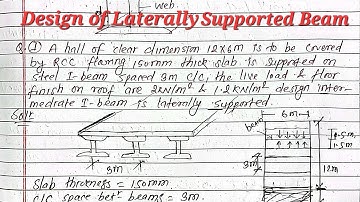 web
Design of Laterally Supported Beam
Q.① A hall of clear dimension 12x6m is to be covered
by RCC flooring 150mm thick slab is supported on
steel I-beam spaced 3m c/c, the live load & floor
finish on roof are 2kN/m² & 1.2kN/m² design inter-
mediate I-beam is laterally supported.
Solⁿ
6m
beam
1.5m
1.5m
3m
12m
3m
Slab thickness = 150mm
C/C space betⁿ beams = 3m